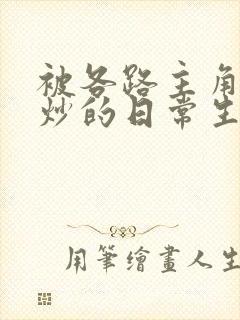 被各路主角
炒的日常生
用筆繪畫人生